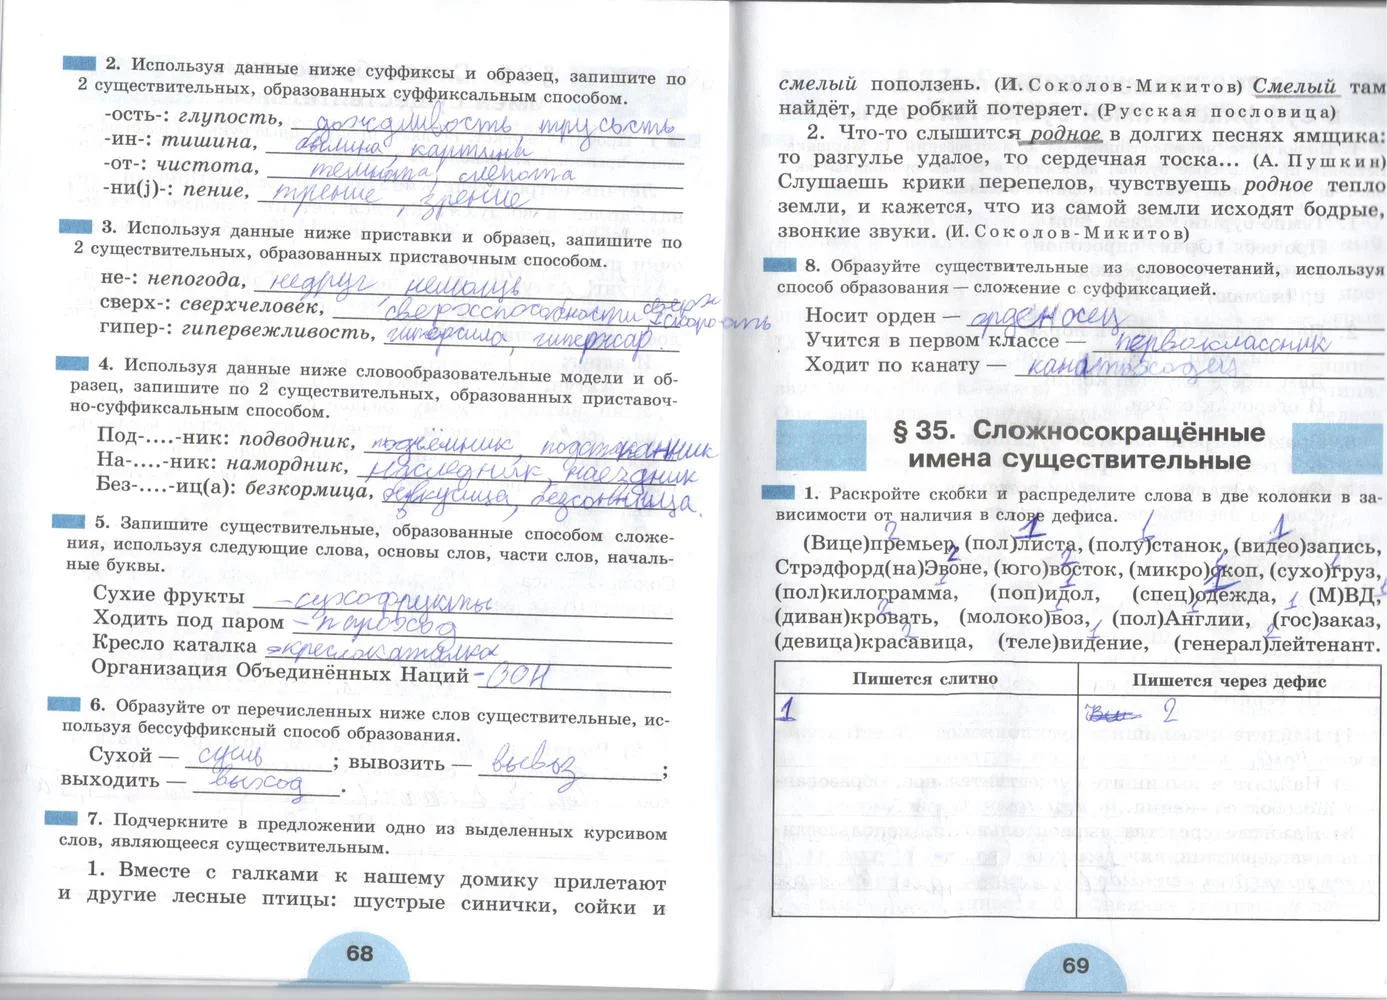 2. Используя данные ниже суффиксы и образец, запишите по
2 существительных, образованных суффиксальным способом.
-ость-: глупость, дождливость трусость
-ин-: тишина, былина, картина
-от-: чистота, темнота, слепота
-ни(j)-: пение, трение зрение
3. Используя данные ниже приставки и образец, запишите по
2 существительных, образованных приставочным способом.
не-: непогода, недруг, немощь
сверх-: сверхчеловек, сверхспособности сверх
скорость
гипер-: гипервежливость, гиперсила, гипержар.
4. Используя данные ниже словообразовательные модели и об-
разец, запишите по 2 существительных, образованных приставоч-
но-суффиксальным способом.
Под-....-ник: подводник,
На-....-ник: намордник, наследник, наездник
Без-....-иц(а): безкормица, безвкусица, безсонница.
5. Запишите существительные, образованные способом сложе-
ния, используя следующие слова, основы слов, части слов, началь-
ные буквы.
Сухие фрукты – сухофрукты
Ходить под паром – пароход
Кресло каталка – креслокаталка
Организация Объединённых Наций – ООН
6. Образуйте от перечисленных ниже слов существительные, ис-
пользуя бессуффиксный способ образования.
Сухой — сушь ; вывозить — вывоз ;
выходить — выход .
7. Подчеркните в предложении одно из выделенных курсивом
слов, являющееся существительным.
1. Вместе с галками к нашему домику прилетают
и другие лесные птицы: шустрые синички, сойки и
68
смелый поползень. (И. Соколов-Микитов) Смелый там
найдёт, где робкий потеряет. (Русская пословица)
2. Что-то слышится родное в долгих песнях ямщика:
то разгулье удалое, то сердечная тоска... (А. Пушкин)
Слушаешь крики перепелов, чувствуешь родное тепло
земли, и кажется, что из самой земли исходят бодрые,
звонкие звуки. (И. Соколов-Микитов)
8. Образуйте существительные из словосочетаний, используя
способ образования — сложение с суффиксацией.
Носит орден — орденосец
Учится в первом классе — первоклассник
Ходит по канату — канатоходец
§ 35. Сложносокращённые
имена существительные
1. Раскройте скобки и распределите слова в две колонки в за-
висимости от наличия в слове дефиса.
(Вице)премьер, (пол)листа, (полу)станок, (видео)запись,
Стрэдфорд(на)Эвоне, (юго)восток, (микро)скоп, (сухо)груз,
(пол)килограмма, (поп)идол, (спец)одежда, (М)ВД,
(диван)кровать, (молоко)воз, (пол)Англии, (гос)заказ,
(девица)красавица, (теле)видение, (генерал)лейтенант.
Пишется слитно Пишется через дефис
1 2
69